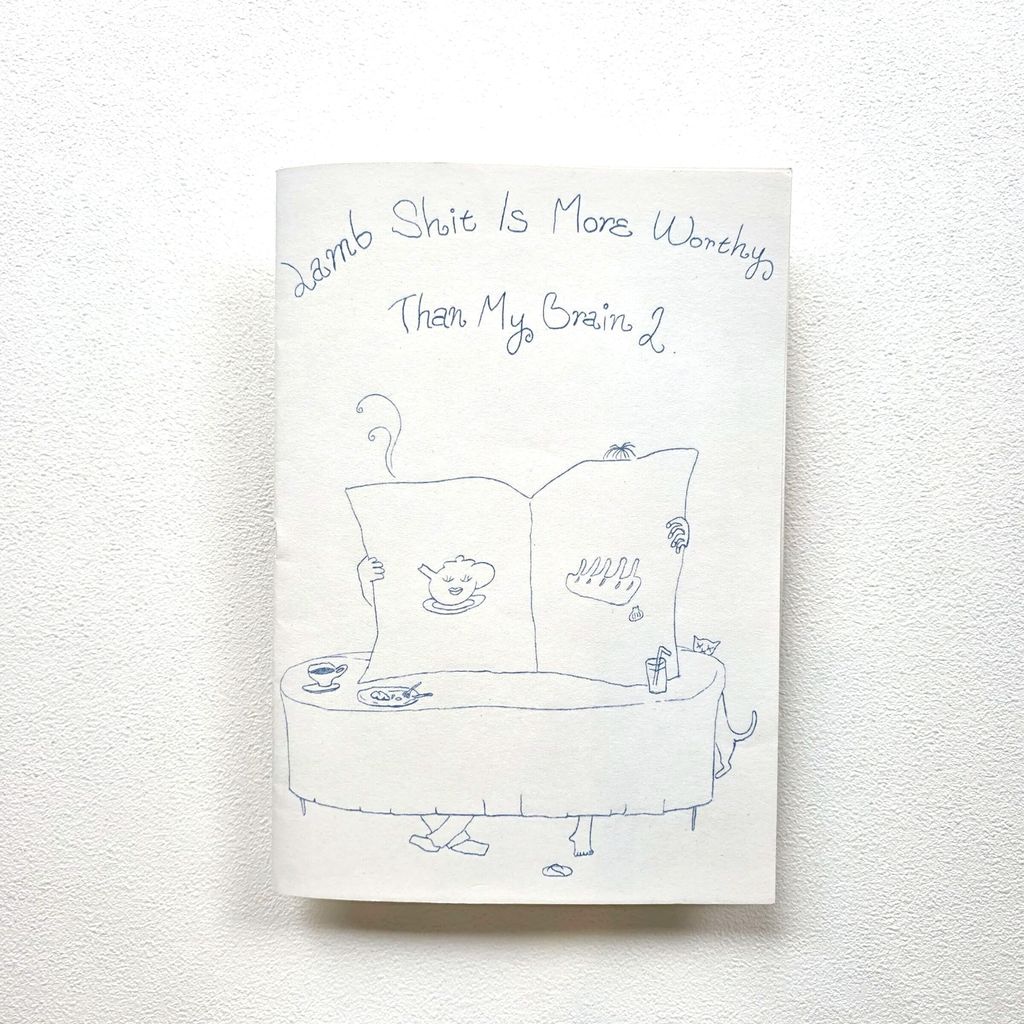 Lamb Shit Is More Worthy
Than My Brain 2